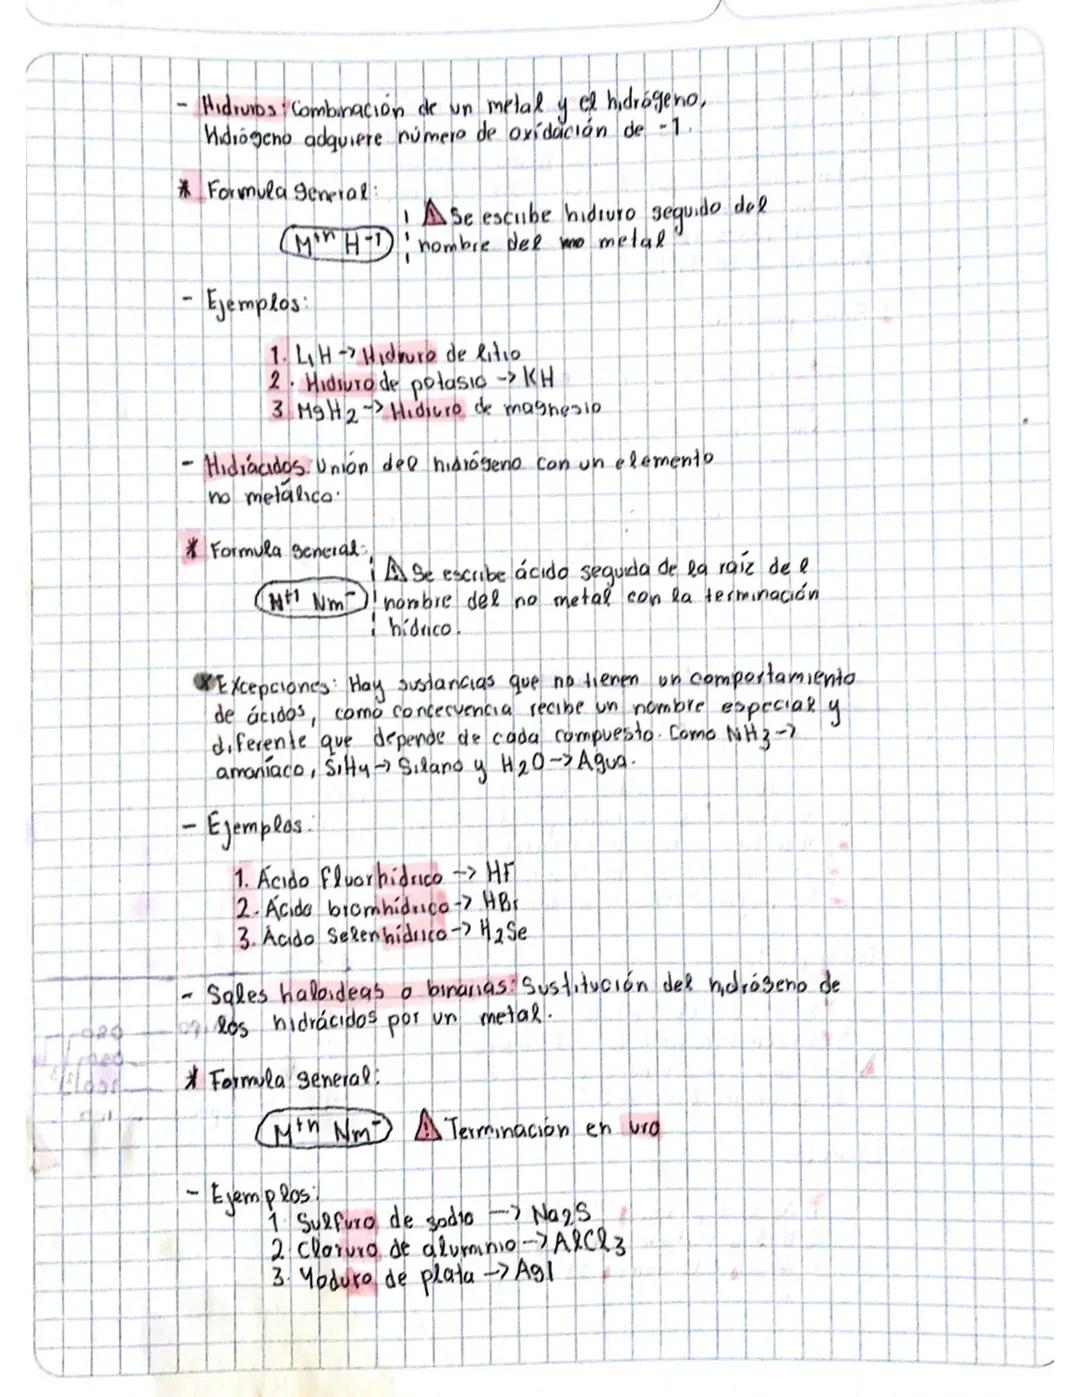 - Hidruros: Combinación de un metal y el hidrógeno,
Hidrógeno adquiere número de oxidación de -1.
* Formula general:
⚠ Se escribe hidruro seguido del
M+n H-1 nombre del metal
- Ejemplos:
1. LiH -> Hidruro de litio
2. Hidruro de potasio -> KH
3 MgH2 -> Hidruro de magnesio
- Hidrácidos: Unión del hidrógeno con un elemento
no metálico.
* Formula general:
⚠ Se escribe ácido seguida de la raíz de l
H+1 Nm- nombre del no metal con la terminación
hídrico.
* Excepciones: Hay sustancias que no tienen un comportamiento
de ácidos, como concecuencia recibe un nombre especial y
diferente que depende de cada compuesto. Como NH3 ->
amoníaco, SiH4 -> Silano y H2O -> Agua.
- Ejemplos:
1. Ácido Fluorhídrico -> HF
2. Ácido bromhídrico -> HBr
3. Ácido Selenhídrico -> H2Se
- Sales haloideas o binarias: Sustitución del hidrógeno de
los hidrácidos por un metal.
* Formula general:
M+n Nm- ⚠ Terminación en uro
- Ejemplos:
1 Sulfuro de sodio -> Na2S
2 Cloruro de aluminio -> AlCl3
3. Yoduro de plata -> AgI